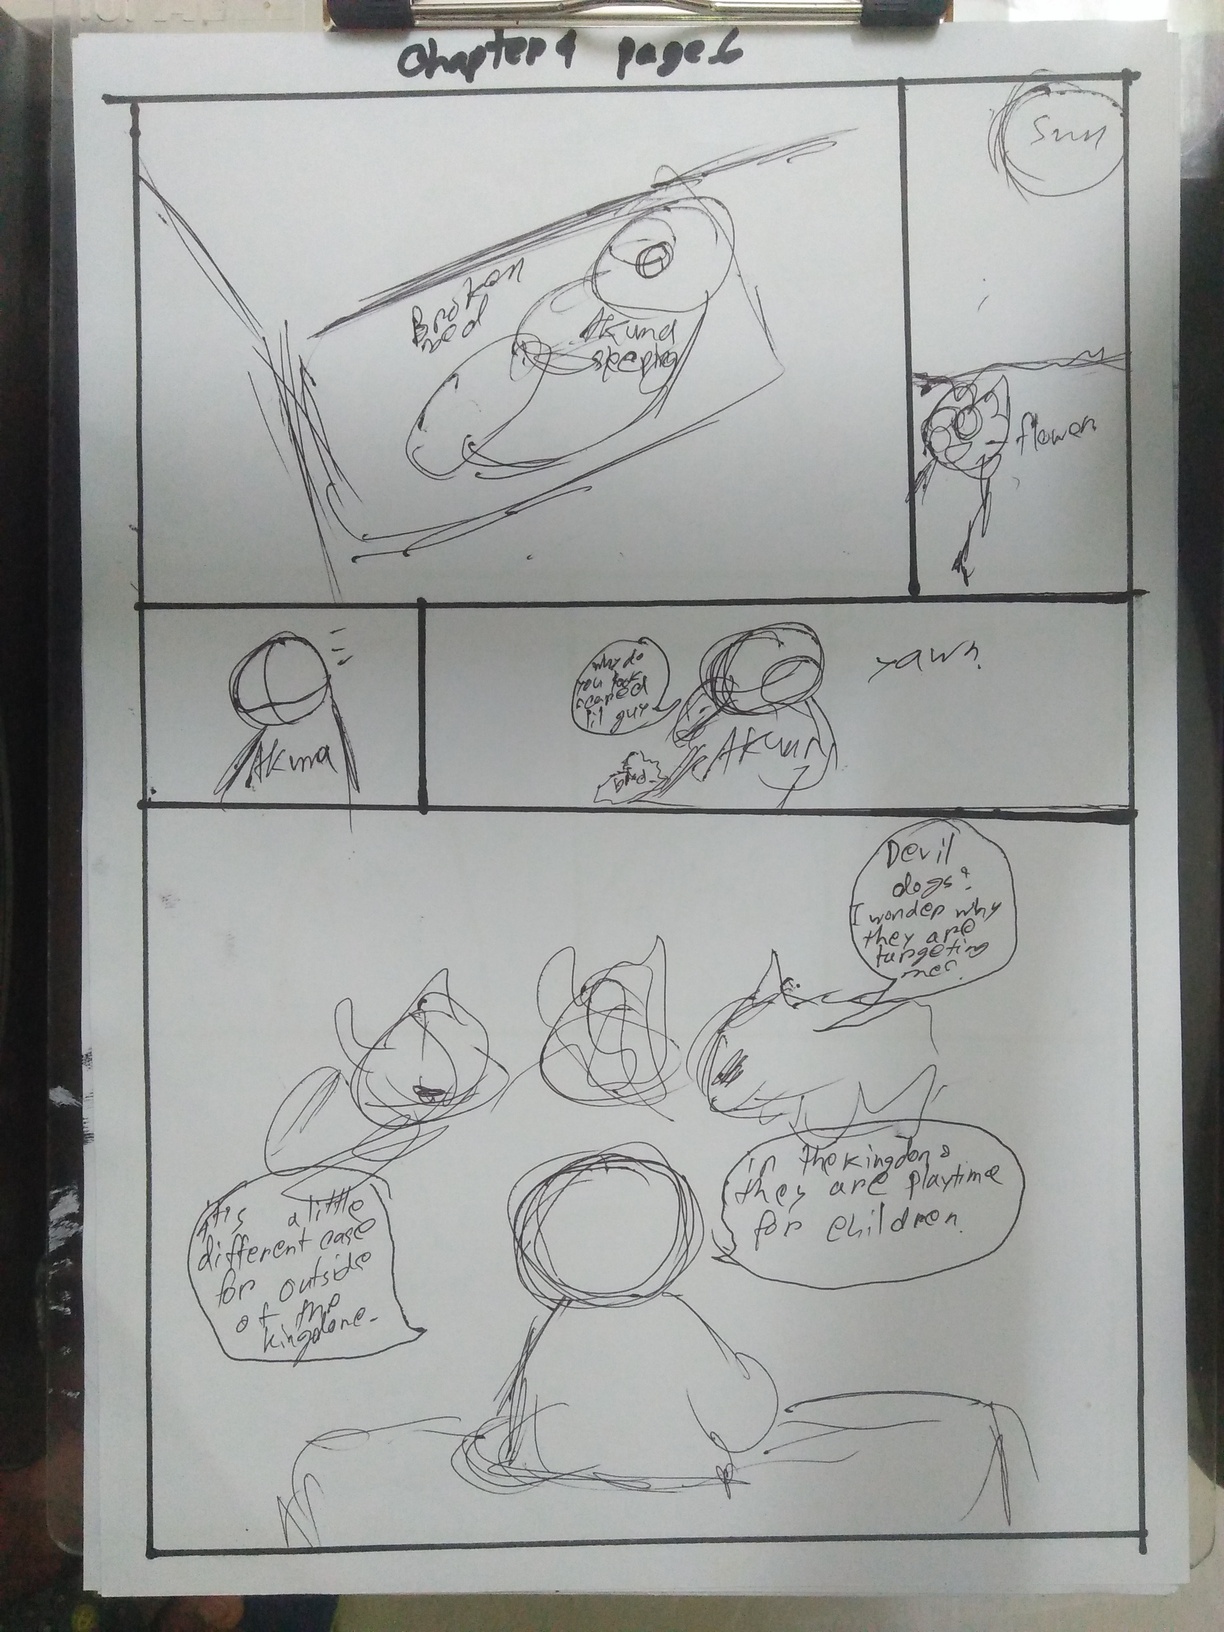 Chapter 4 page 6
Broken
bed
Akuma
sleeping
Sun
flower
Akuma
why do
you look
scared
lil guy
bird
Akuma
yawn
Devil
dogs?
I wonder why
they are
targeting
me?
in the kingdom
they are playtime
for children.
it is a little
different case
for outside
of the
kingdome.